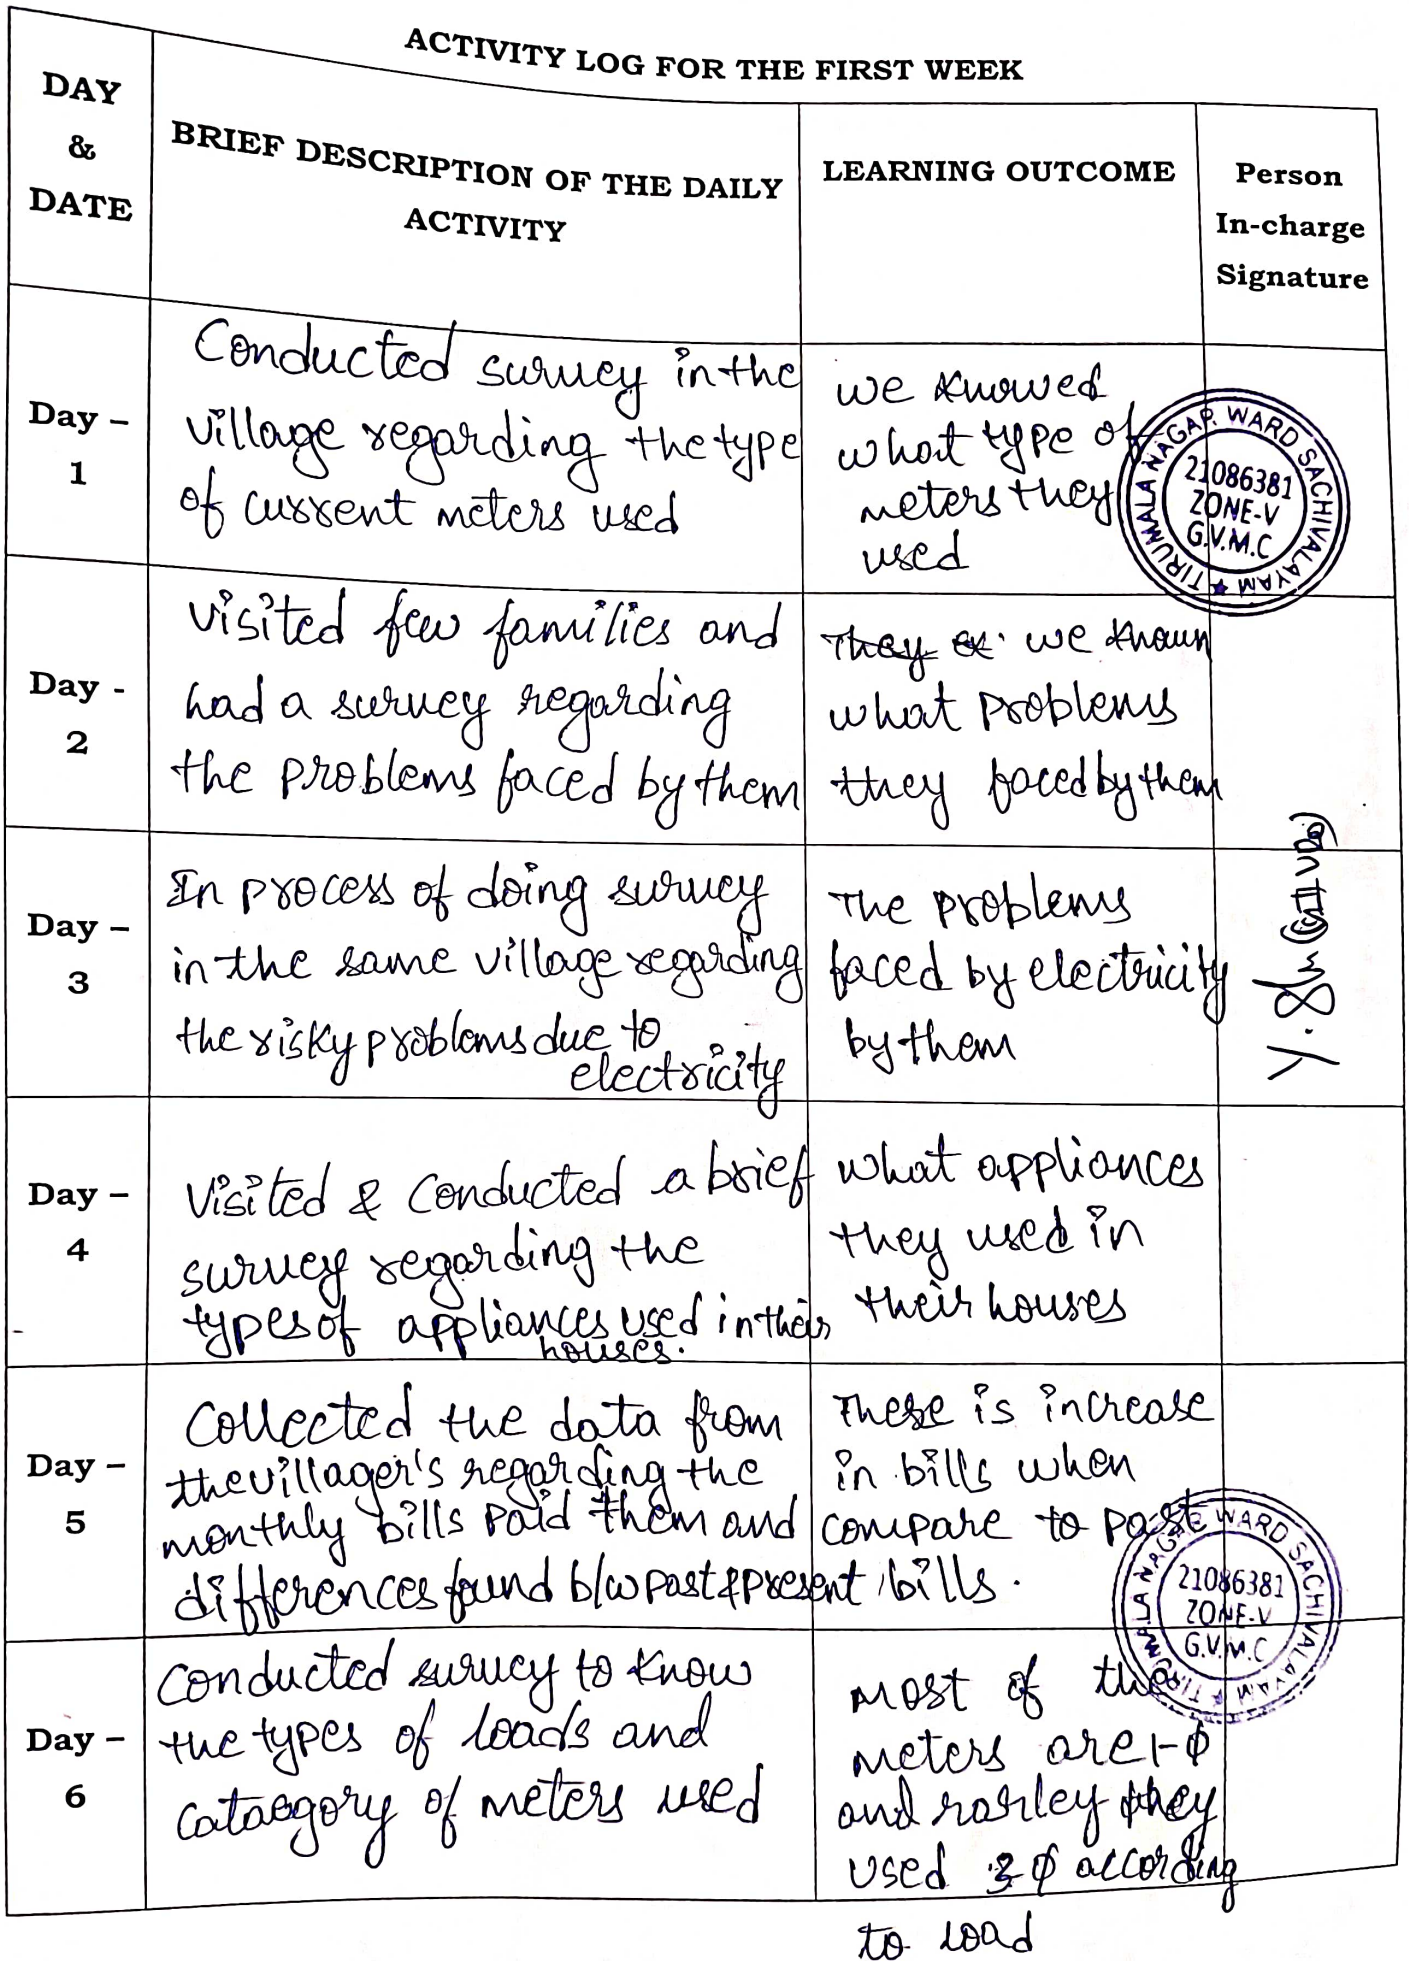 ACTIVITY LOG FOR THE FIRST WEEK
DAY
&
DATE
BRIEF DESCRIPTION OF THE DAILY
ACTIVITY
LEARNING OUTCOME
Person
In-charge
Signature
Day –
1
Conducted survey in the
village regarding the type
of current meters used
we knowed
what type of
meters they
used
TIRUMALA NAGAR WARD SACHIVALAYAM
21086381
ZONE-V
G.V.M.C
Day -
2
visited few families and
had a survey regarding
the problems faced by them
They ex. we known
what problems
they faced by them
Day –
3
In process of doing survey
in the same village regarding
the risky problems due to
electricity
The problems
faced by electricity
by them
Day –
4
Visited & Conducted a brief
survey regarding the
types of appliances used in their
houses.
what appliances
they used in
their houses
Day –
5
Collected the data from
the villager's regarding the
monthly bills paid them and
differences found b/w past & present bills.
These is increase
in bills when
compare to past
TIRUMALA NAGAR WARD SACHIVALAYAM
21086381
ZONE-V
G.V.M.C
Day –
6
Conducted survey to know
the types of loads and
cataegory of meters used
most of the
meters are 1-ϕ
and rarley they
used 3 ϕ according
to load